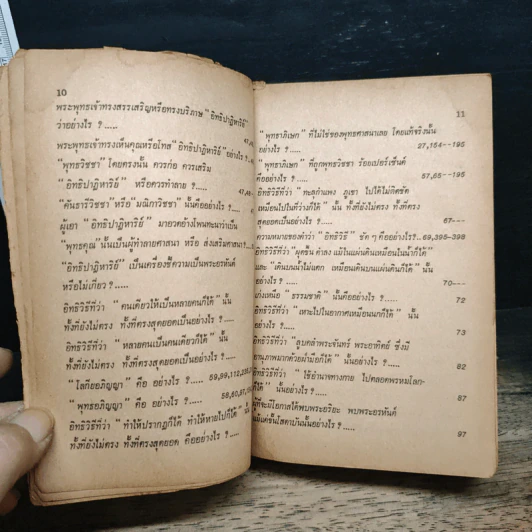 10
พระพุทธเจ้าทรงสรรเสริญหรือทรงบริภาษ “อิทธิปาฏิหาริย์”
ว่าอย่างไร ?.....
พระพุทธเจ้าทรงเห็นคุณหรือโทษ “อิทธิปาฏิหาริย์” อย่างไร ?
“พุทธวิชชา” โดยตรงนั้น ควรก่อ ควรเสริม
“อิทธิปาฏิหาริย์” หรือควรทำลาย ?.....
“คันธารีวิชชา” หรือ “มณิกาวิชชา” นั้นคืออย่างไร ?
ผู้เอา “อิทธิปาฏิหาริย์” มาอวดอ้างโพนทะนาว่าเป็น
“พุทธคุณ” นั้นเป็นผู้ทำลายศาสนา หรือ ส่งเสริมศาสนา ?
“อิทธิปาฏิหาริย์” เป็นเครื่องชี้ความเป็นพระอรหันต์
หรือไม่เกี่ยว ?.....
อิทธิวิธีที่ว่า “คนเดียวให้เป็นหลายคนก็ได้” นั้น
ทั้งที่ยังไม่ตรง ทั้งที่ตรงสุดยอดเป็นอย่างไร ?.....
อิทธิวิธีที่ว่า “หลายคนเป็นคนเดียวก็ได้” นั้น
ทั้งที่ยังไม่ตรง ทั้งที่ตรงสุดยอดเป็นอย่างไร ?.....
“โลกียอภิญญา” คือ อย่างไร ?..... 59,99,112,
“พุทธอภิญญา” คือ อย่างไร ?..... 59,60,97,
อิทธิวิธีที่ว่า “ทำให้ปรากฏก็ได้ ทำให้หายไปก็ได้” นั้น
ทั้งที่ยังไม่ตรง ทั้งที่ตรงสุดยอด คืออย่างไร ?.....
11
“พุทธาภิเษก” ที่ไม่ใช่ของพุทธศาสนาเลย โดยแท้จริงนั้น
อย่างไร ?..... 27,154--195
“พุทธาภิเษก” ที่ถูกพุทธวิชชา ร้อยเปอร์เซ็นต์
คืออย่างไร ?..... 57,65--195
อิทธิวิธีที่ว่า “ทะลุกำแพง ภูเขา ไปได้ไม่ติดขัด
เหมือนไปในที่ว่างก็ได้” นั้น ทั้งที่ยังไม่ตรง ทั้งที่ตรง
สุดยอดเป็นอย่างไร ?..... 67---
ความหมายของคำว่า “อิทธิวิธี” ชัด ๆ คืออย่างไร?..69,395-398
อิทธิวิธีที่ว่า “ผุดขึ้น ดำลง แม้ในแผ่นดินเหมือนในน้ำก็ได้”
และ “เดินบนน้ำไม่แตก เหมือนเดินบนแผ่นดินก็ได้” นั้น
70---
เก่งเหนือ “ธรรมชาติ” นั้นคืออย่างไร ?..... 72
อิทธิวิธีที่ว่า “เหาะไปในอากาศเหมือนนกก็ได้” นั้น
อย่างไร ?..... 73
อิทธิวิธีที่ว่า “ลูบคลำพระจันทร์ พระอาทิตย์ ซึ่งมี
อานุภาพมากด้วยฝ่ามือก็ได้” นั้นอย่างไร ?..... 82
อิทธิวิธีที่ว่า “ใช้อำนาจทางกาย ไปตลอดพรหมโลก-
ก็ได้” นั้นอย่างไร ?..... 87
ผู้ที่จะมีโอกาสได้พบพระอริยะ พบพระอรหันต์
แม้แต่ขั้นโสดาบันนั้นอย่างไร ?..... 97